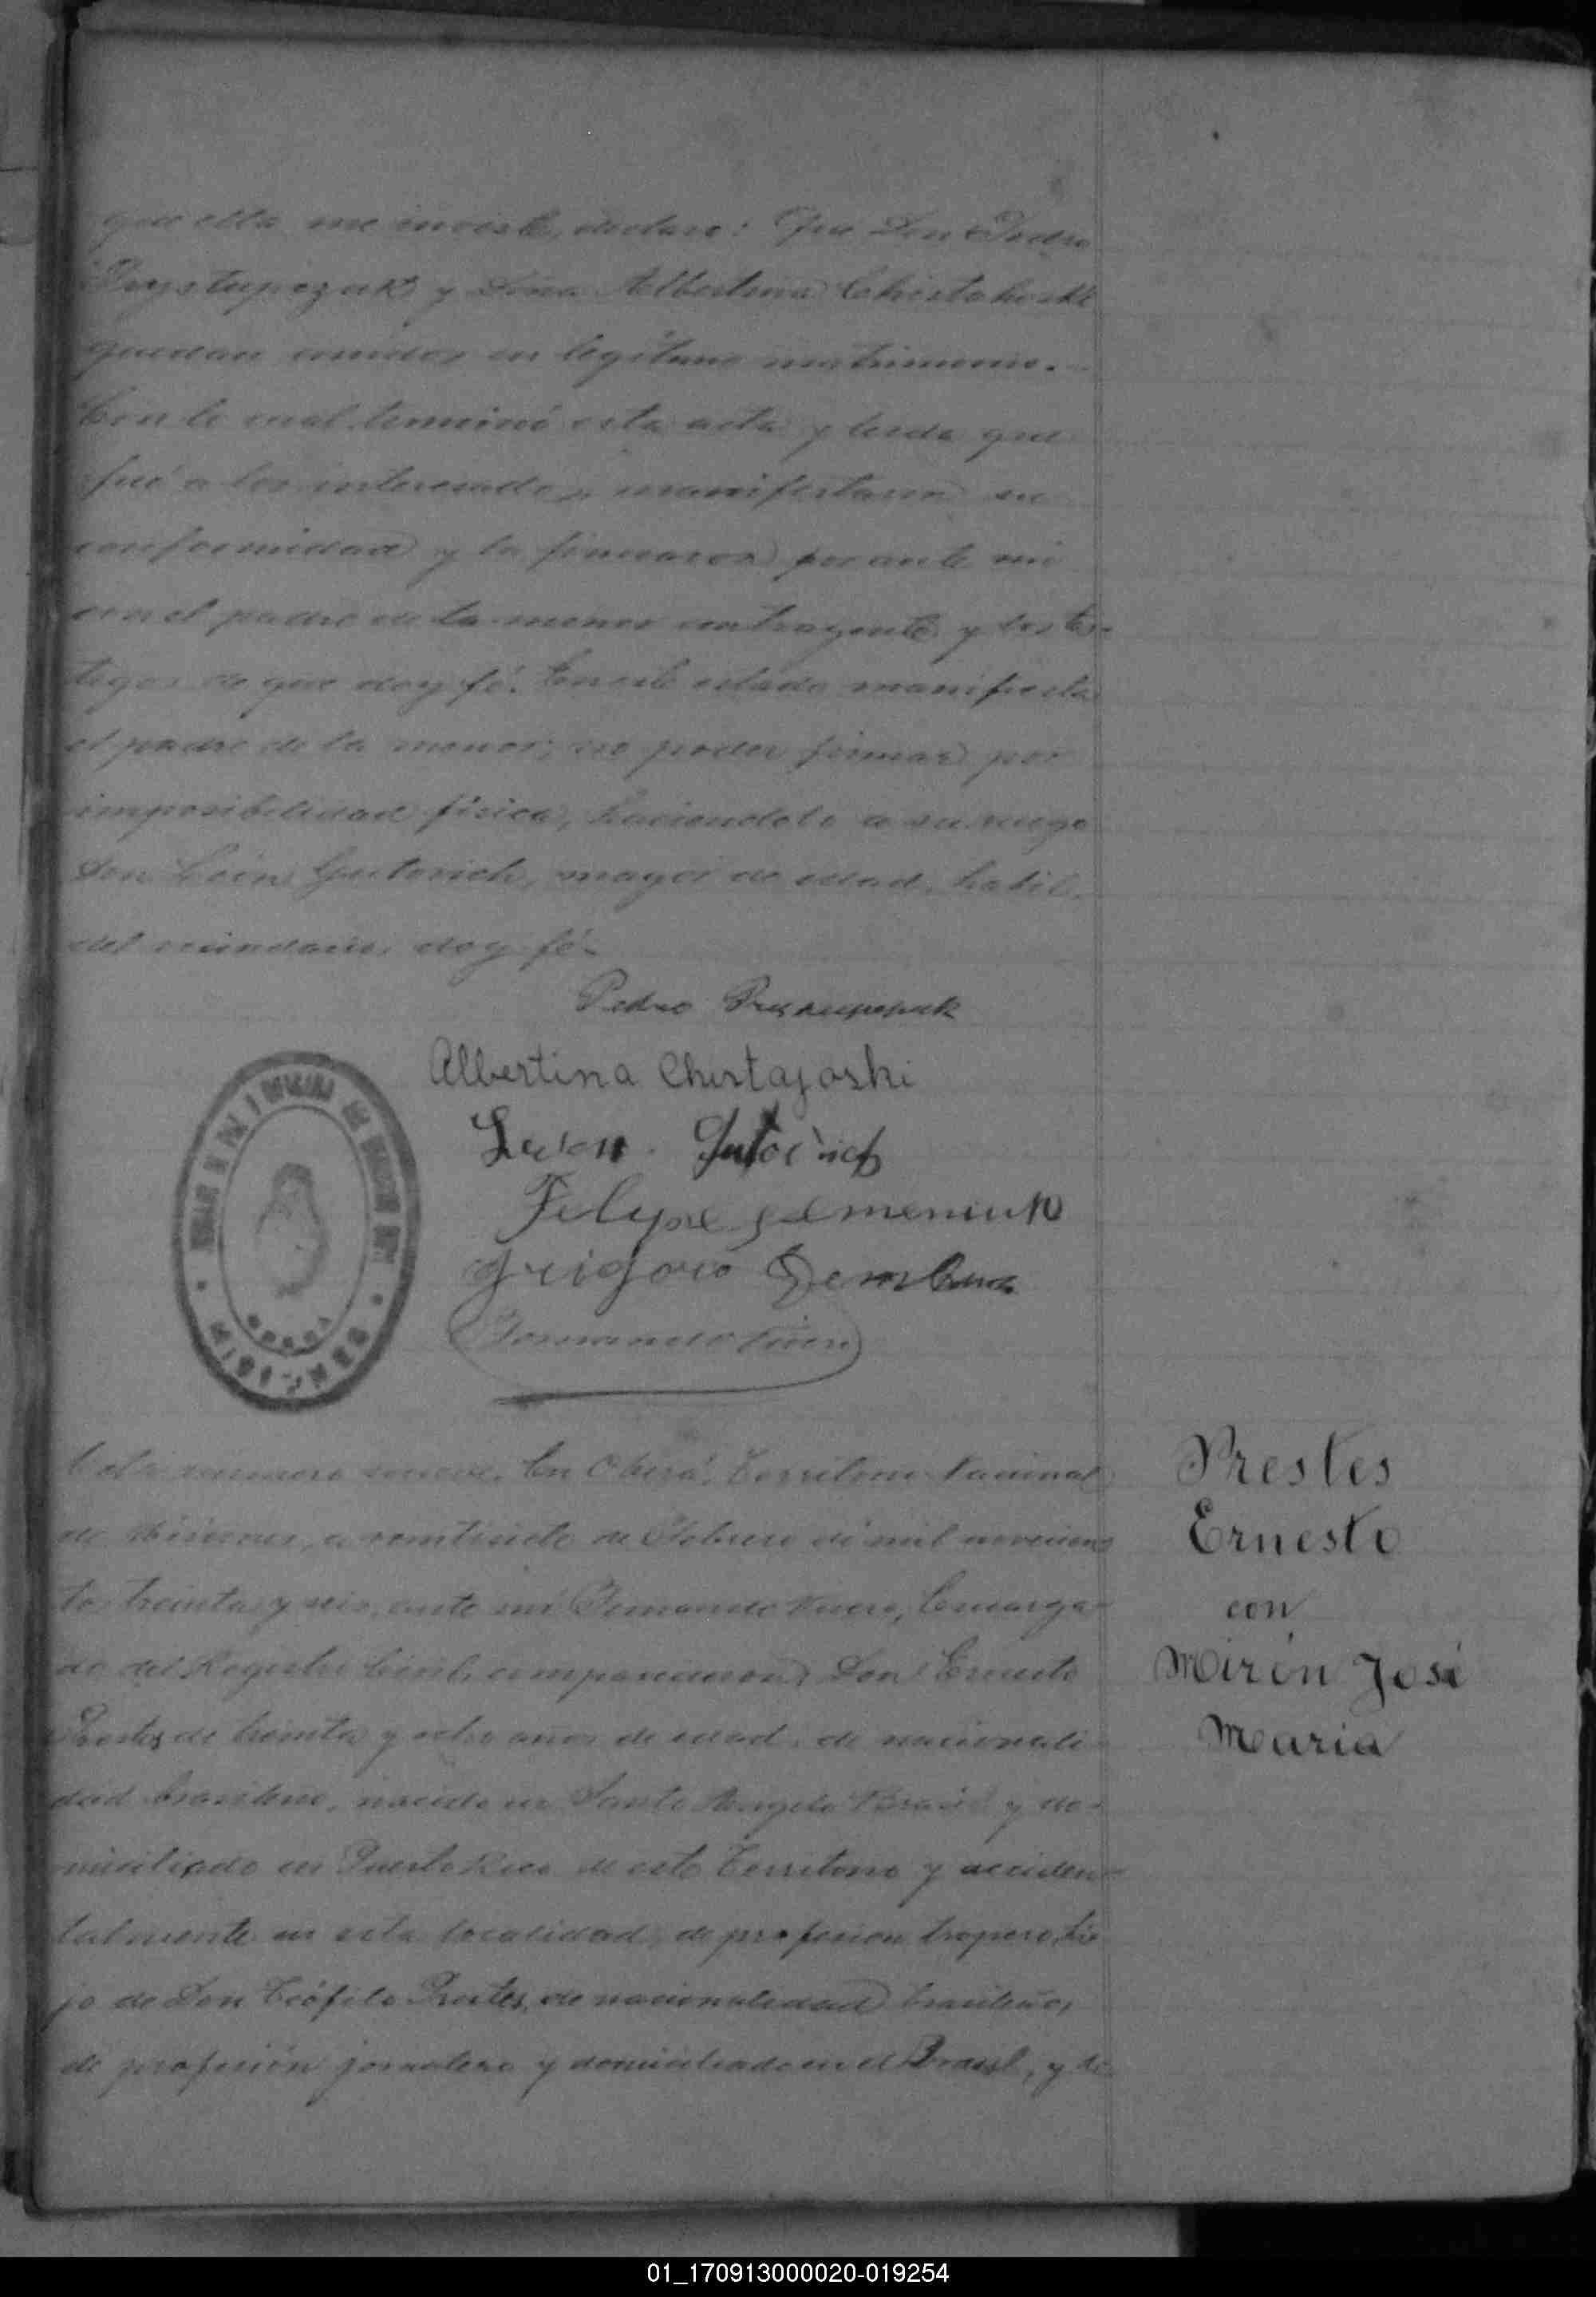 que ella me inviste, declaro: Que Don Pedro
Prystupczuk y Doña Albertina Christahoski
quedan unidos en legítimo matrimonio.
Con lo cual terminó esta acta y leida que
fué a los interesados, manifestaron su
conformidad y la firmaron por ante mí
con el padre de la menor contrayente y los tes-
tigos de que doy fé. En este estado manifiesta
el padre de la menor, no poder firmar por
imposibilidad física, haciendolo a su ruego
Don León Gutovich, mayor de edad, habil,
del vecindario, doy fé.-
Pedro
Albertina Chistajoski
León
Felype Semeniuk
Grigorio
Fernando
Acta número nueve. En Oberá, Territorio Nacional
de Misiones, a veintisiete de Febrero de mil novecien
tos treinta y seis, ante mí Fernando Encarga-
do del Registro Civil, comparecieron: Don Ernesto
Prestes de treinta y ocho años de edad, de nacionali-
dad brasileno, nacido en Santo Angelo Brasil y do-
miciliado en Puerto Rico de este Territorio y acciden-
talmente en esta localidad, de profesion tropero, hi
jo de Don Teófilo Prestes, de nacionalidad brasileño,
de profesión jornalero y domiciliado en el Brasil, y de
Prestes
Ernesto
con
Mirón José
Maria
01_170913000020-019254